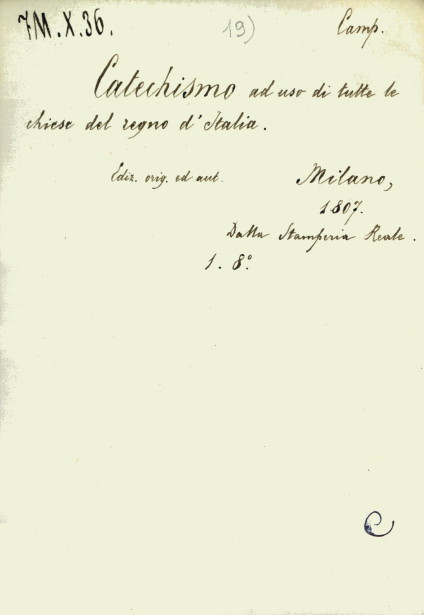 7M.X.36. 19) Camp.
Catechismo ad uso di tutte le
chiese del regno d'Italia.
Ediz. orig. ed aut. Milano,
1807.
Dalla Stamperia Reale.
1. 8°.
C